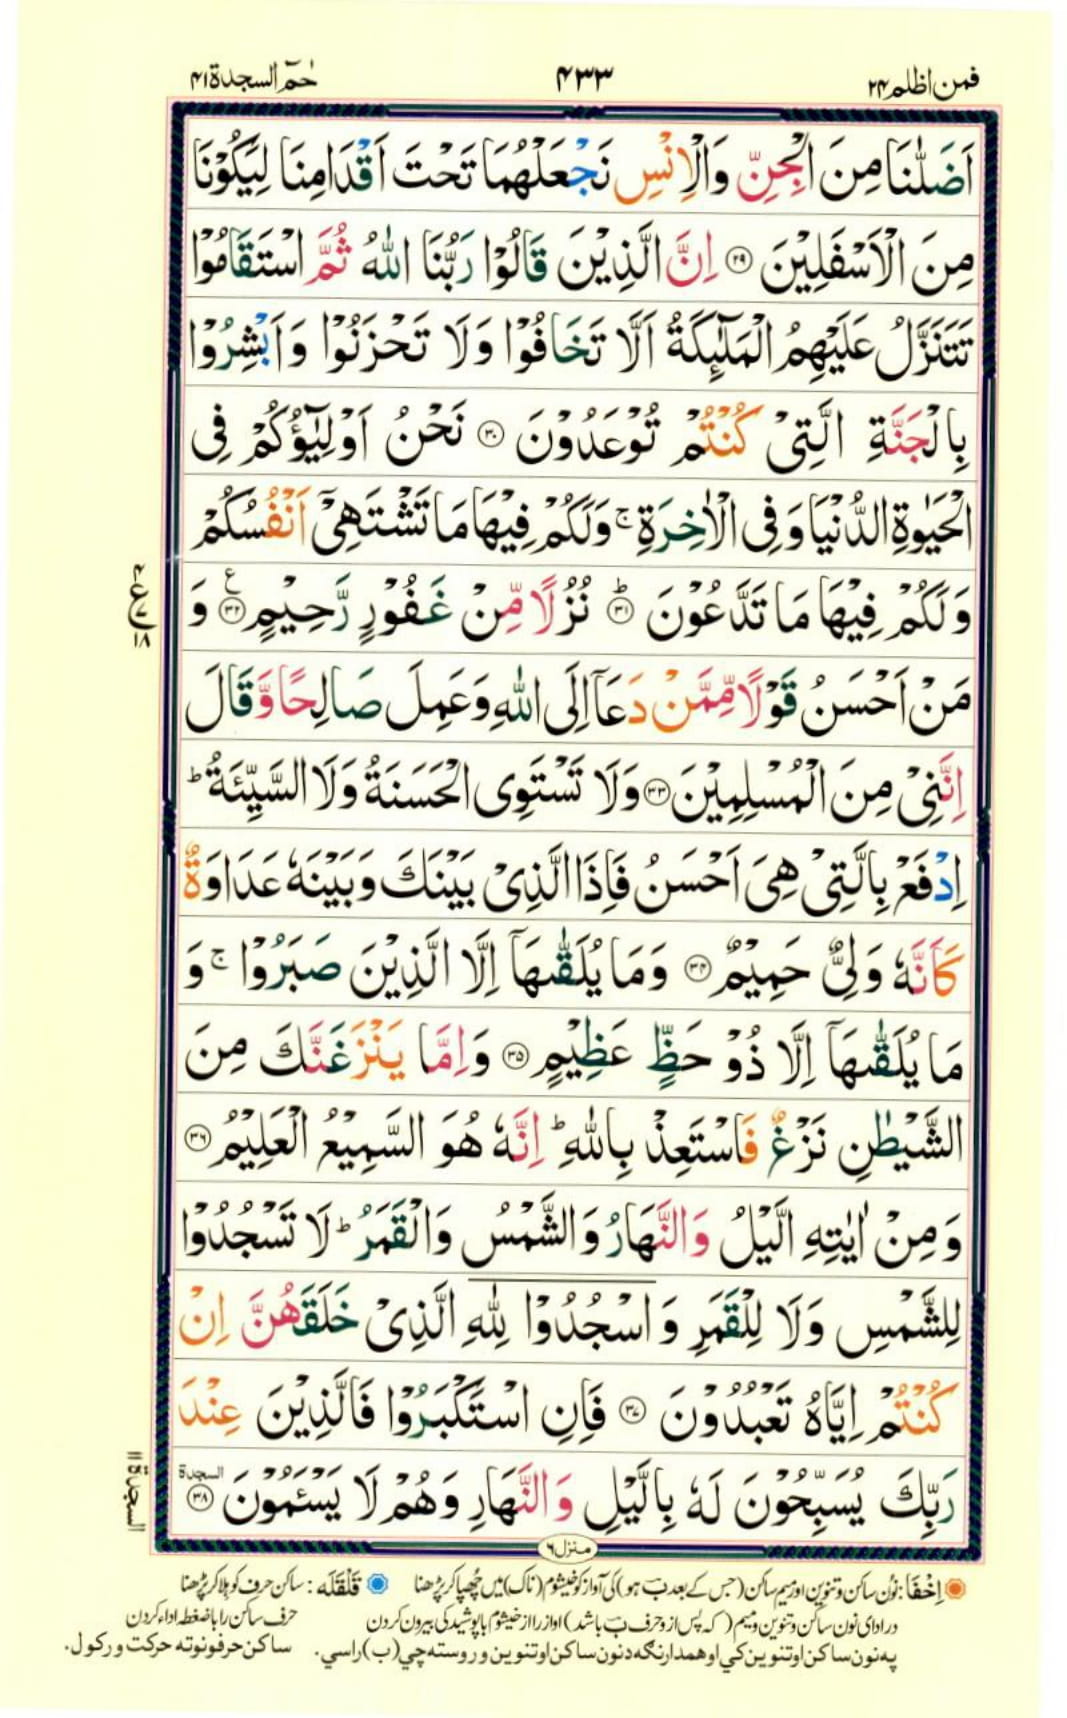 فمن اظلم ۲۴
۴۳۳
حٰمٓ السجدة ۴۱
اَضَلّٰنَا مِنَ الْجِنِّ وَالْاِنْسِ نَجْعَلْهُمَا تَحْتَ اَقْدَامِنَا لِيَكُوْنَا
مِنَ الْاَسْفَلِيْنَ ۲۹ اِنَّ الَّذِيْنَ قَالُوْا رَبُّنَا اللّٰهُ ثُمَّ اسْتَقَامُوْا
تَتَنَزَّلُ عَلَيْهِمُ الْمَلٰٓئِكَةُ اَلَّا تَخَافُوْا وَلَا تَحْزَنُوْا وَاَبْشِرُوْا
بِالْجَنَّةِ الَّتِيْ كُنْتُمْ تُوْعَدُوْنَ ۳۰ نَحْنُ اَوْلِيٰٓؤُكُمْ فِى
الْحَيٰوةِ الدُّنْيَا وَفِى الْاٰخِرَةِ ۚ وَلَكُمْ فِيْهَا مَا تَشْتَهِيْٓ اَنْفُسُكُمْ
وَلَكُمْ فِيْهَا مَا تَدَّعُوْنَ ؕ ۳۱ نُزُلًا مِّنْ غَفُوْرٍ رَّحِيْمٍ ۳۲ ع وَ
مَنْ اَحْسَنُ قَوْلًا مِّمَّنْ دَعَآ اِلَى اللّٰهِ وَعَمِلَ صَالِحًا وَّقَالَ
اِنَّنِيْ مِنَ الْمُسْلِمِيْنَ ۳۳ وَلَا تَسْتَوِى الْحَسَنَةُ وَلَا السَّيِّئَةُ ؕ
اِدْفَعْ بِالَّتِيْ هِيَ اَحْسَنُ فَاِذَا الَّذِيْ بَيْنَكَ وَبَيْنَهٗ عَدَاوَةٌ
كَاَنَّهٗ وَلِيٌّ حَمِيْمٌ ۳۴ وَمَا يُلَقّٰىهَآ اِلَّا الَّذِيْنَ صَبَرُوْا ۚ وَ
مَا يُلَقّٰىهَآ اِلَّا ذُوْ حَظٍّ عَظِيْمٍ ۳۵ وَاِمَّا يَنْزَغَنَّكَ مِنَ
الشَّيْطٰنِ نَزْغٌ فَاسْتَعِذْ بِاللّٰهِ ؕ اِنَّهٗ هُوَ السَّمِيْعُ الْعَلِيْمُ ۳۶
وَمِنْ اٰيٰتِهِ الَّيْلُ وَالنَّهَارُ وَالشَّمْسُ وَالْقَمَرُ ؕ لَا تَسْجُدُوْا
لِلشَّمْسِ وَلَا لِلْقَمَرِ وَاسْجُدُوْا لِلّٰهِ الَّذِيْ خَلَقَهُنَّ اِنْ
كُنْتُمْ اِيَّاهُ تَعْبُدُوْنَ ۳۷ فَاِنِ اسْتَكْبَرُوْا فَالَّذِيْنَ عِنْدَ
رَبِّكَ يُسَبِّحُوْنَ لَهٗ بِالَّيْلِ وَالنَّهَارِ وَهُمْ لَا يَسْـَٔمُوْنَ ۳۸ السجدة
ع ۱۸
السجدة ۱۱
منزل ۶
اِخْفَا: نون ساکن و تنوین اور میم ساکن (جس کے بعد ب ہو) کی آواز کو خیشوم (ناک) میں چُھپا کر پڑھنا
قَلْقَلَه: ساکن حرف کو ہلا کر پڑھنا
در ادای نون ساکن و تنوین و میم (که پس از و حرف ب باشد) آواز را از خیشوم با پوشیدگی بیرون کردن
حرف ساکن را با ضغطه ادا کردن
په نون ساکن او تنوین کي او همدارنګه د نون ساکن او تنوین وروسته چي (ب) راسي.
ساکن حرفونو ته حرکت ورکول.